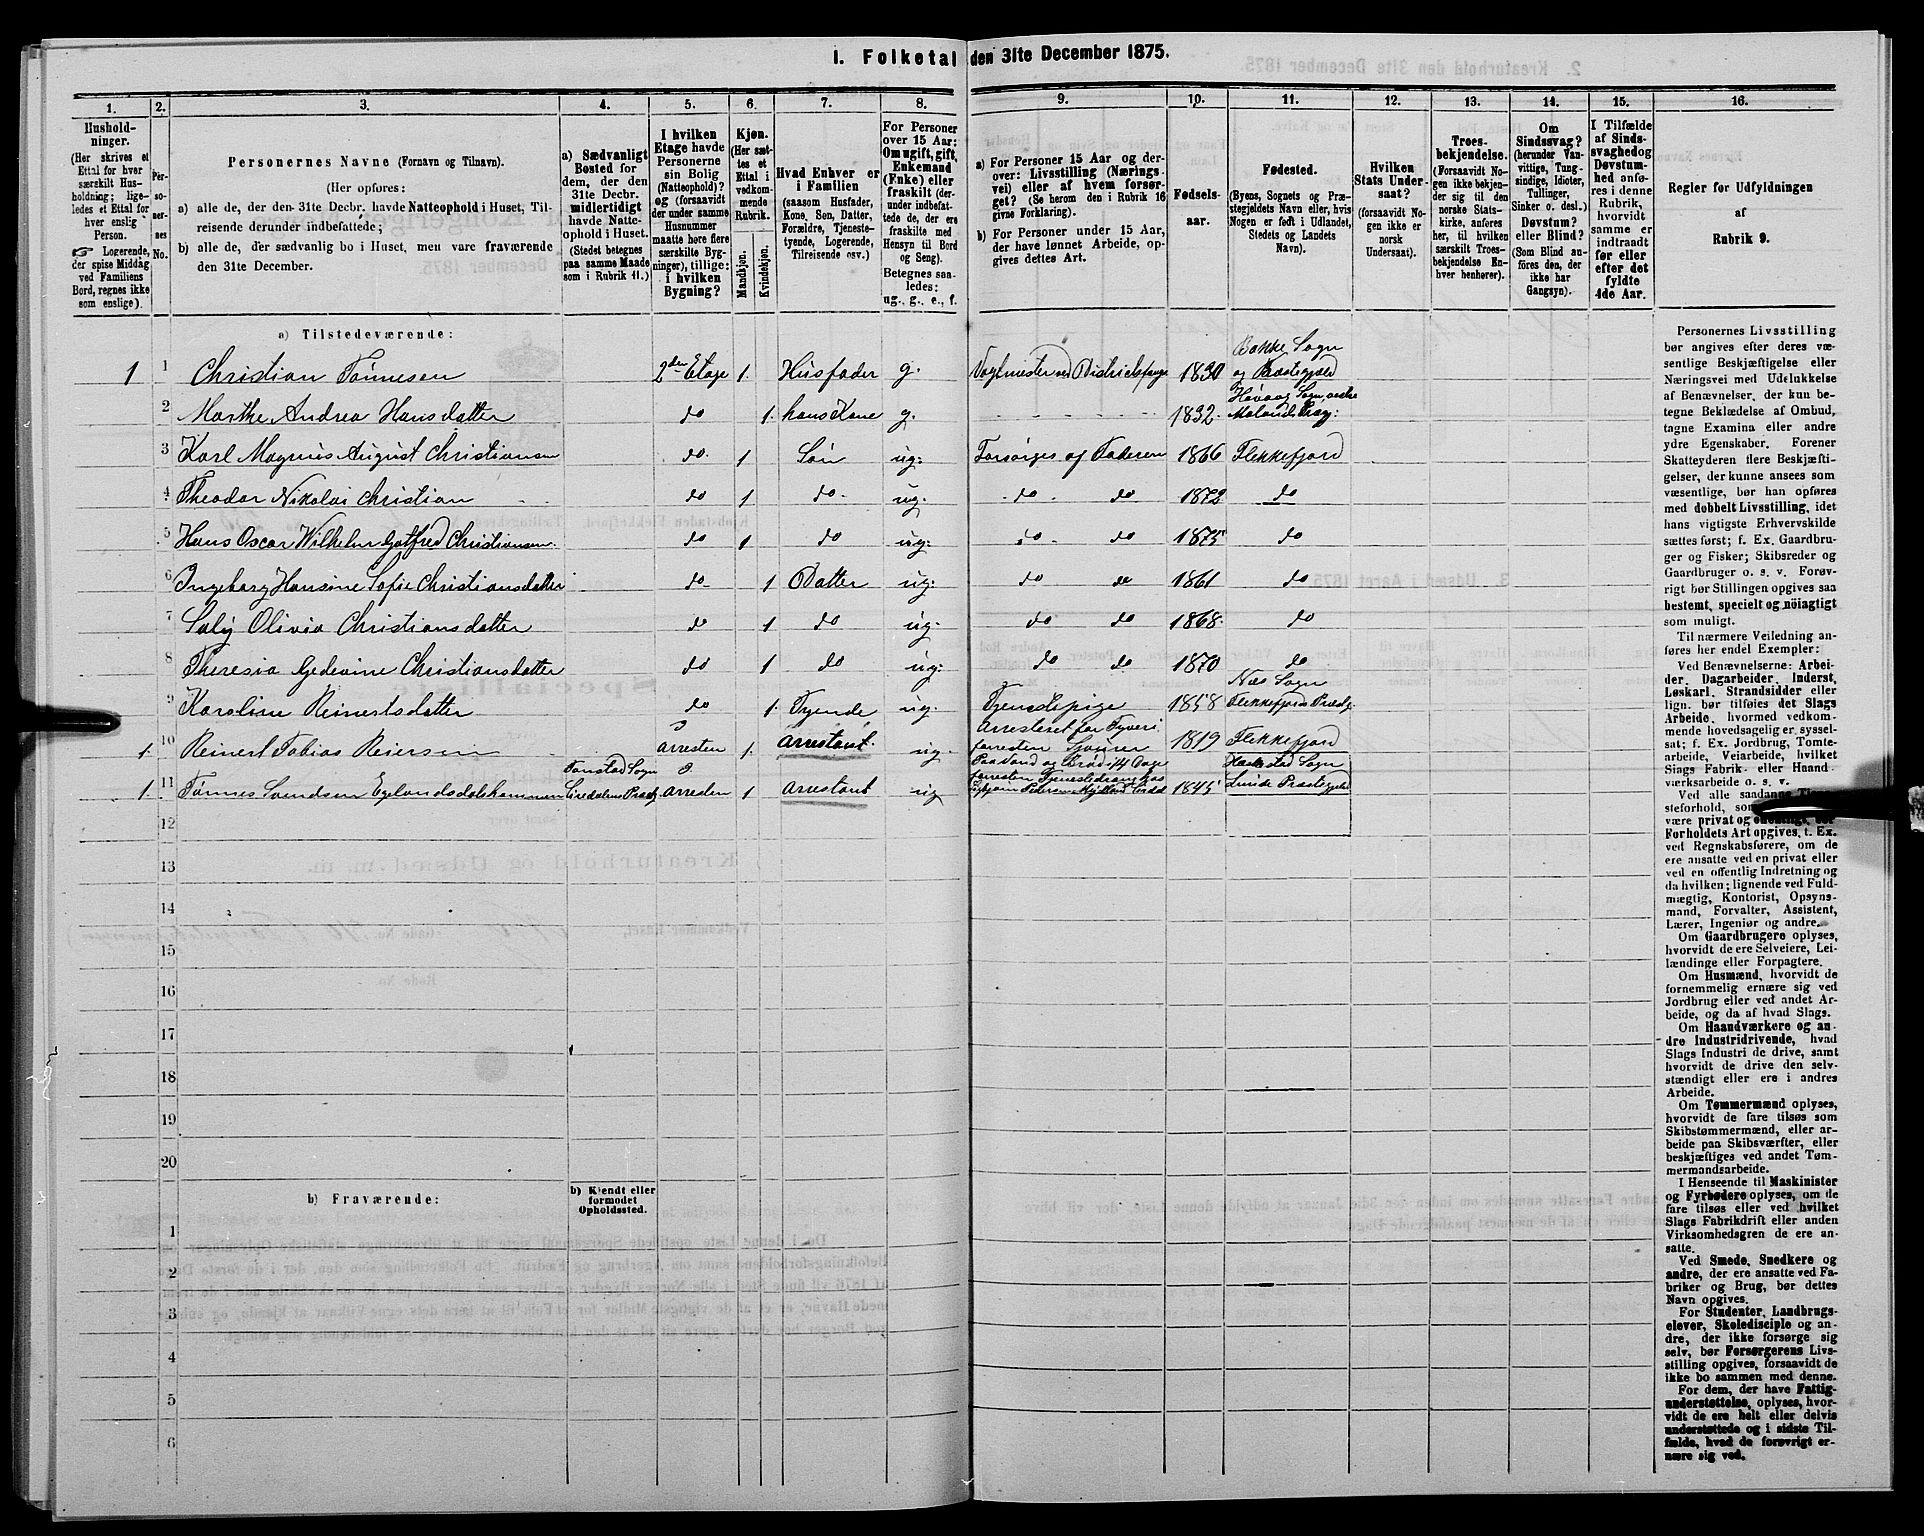 1. Folketal den 31te December 1875.
1. 2. 3. 4. 5. 6. 7. 8. 9. 10. 11. 12. 13. 14. 15. 16.
Hushold-
ninger.
(Her skrives et
Ettal for hver
særskilt Hus-
holdning; lige-
ledes et Ettal for
hver enslig
Person.
☞ Logerende,
der spise Middag
ved Familiens
Bord, regnes ikke
som enslige).
Per-
so-
ner-
nes
No.
Personernes Navne (Fornavn og Tilnavn).
(Her opføres:
a) alle de, der den 31te Decbr. havde Natteophold i Huset, Til-
reisende derunder indbefattede;
b) alle de, der sædvanlig bo i Huset, men vare fraværende
den 31te December.
a) Sædvanligt
Bosted for
dem, der den
31te Decbr.
midlertidigt
havde Natte-
ophold i Huset.
(Stedet betegnes
paa samme Maade
som i Rubrik 11.)
I hvilken
Etage havde
Personerne
sin Bolig
(Natteophold)?
og (forsaavidt
der under samme
Husnummer
maatte høre flere
særskilte Byg-
ninger), tillige:
i hvilken
Bygning?
Kjøn.
(Her sæt-
tes et
Ettal i
vedkom-
mende
Rubrik.
Mandkjøn.
Kvindekjøn.
Hvad Enhver er
i Familien
(saasom Husfader,
Kone, Søn, Datter,
Forældre, Tjeneste-
tyende, Logerende,
Tilreisende osv.)
For Personer
over 15 Aar:
Om ugift, gift,
Enkemand
(Enke) eller
fraskilt (der-
under indbefat-
tede de, der ere
fraskilte med
Hensyn til Bord
og Seng).
Betegnes saa-
ledes:
ug., g., e., f.
a) For Personer 15 Aar og der-
over: Livsstilling (Nærings-
vei) eller af hvem forsør-
get? (Se herom den i Rubrik 16
givne Forklaring).
b) For Personer under 15 Aar,
der have lønnet Arbeide, op-
gives dettes Art.
Fødsels-
aar.
Fødested.
(Byens, Sognets og Præ-
stegjeldets Navn eller, hvis
Nogen er født i Udlandet,
Stedets og Landets
Navn).
Hvilken
Stats Under-
saat?
(forsaavidt No-
gen ikke er
norsk
Undersaat).
Troes-
bekjendelse.
(Forsaavidt No-
gen ikke bekjen-
der sig til den
norske Stats-
kirke, anføres
her, til hvilken
særskilt Troes-
bekjendelse En-
hver henhører).
Om
Sindssvag?
(herunder Van-
vittige, Tung-
sindige, Idioter,
Tullinger,
Sinker o. desl.)
Døvstum?
eller Blind?
(Som Blind an-
føres den, der
ikke har
Gangsyn).
I Tilfælde
af Sinds-
svaghed og
Døvstum-
hed anfø-
res i denne
Rubrik,
hvorvidt
samme er
indtraadt
før eller
efter det
fyldte
4de Aar.
Regler for Udfyldningen
af
Rubrik 9.
a) Tilstedeværende:
1 1 Christian Tønnesen 2den Etage 1. Husfader g. Vagtmester ved Districtsfængs 1830 Bakke Sogn og Præstegjeld
2 Marthe Andrea Hansdatter do 1. hans Kone g. 1832. Høvaag Sogn, vestre Molands Præg:
3 Karl Magnus August Christiansen do. 1 Søn ug: Forsørges af Faderen 1866 Flekkefjord
4 Theodor Nikolai Christian do 1 do ug. do do 1872 do
5 Hans Oscar Wilhelm Gotfred Christiansen. do 1 do ug: do do 1875 do
6 Ingeborg Hansine Sofie Christiansdatter do 1 Datter ug: do do 1861 do
7 Saly Olivia Christiansdatter do 1 do ug. do do 1868. do
8 Theresia Gedevine Christiansdatter do 1 do ug: do do 1870 do
9 Karoline Reinertsdatter do 1. Tyende ug. Tjenestepige 1858 Næs Sogn Flekkefjords Prædg.
1. 10 Reinert Tobias Reiersen Arresten 1. Arrestant. ug. Arresteret for Tyveri forresten 1819 Flekkefjord
1. 11 Tønnes Svendsen Egelandsdalshammen Tonstad Sogn Siredalens Præstg Arresten 1 Arrestant ug Paa Vand og Brød i 14 Dage forresten Tjenestedreng hos 1845 Sogn Præstegjeld
12
13
14
15
16
17
18
19
20
b) Fraværende:
b) Kjendt eller
formodet
Opholdssted.
1
2
3
4
5
6
Personernes Livsstilling
bør angives efter deres væ-
sentlige Beskjæftigelse eller
Næringsvei med Udelukkelse
af Benævnelser, der kun be-
tegne Beklædelse af Ombud,
tagne Examina eller andre
ydre Egenskaber. Forener
Skatteyderen flere Beskjæfti-
gelser, der kunne ansees som
væsentlige, bør han opføres
med dobbelt Livsstilling, idet
hans vigtigste Erhvervskilde
sættes først; f. Ex. Gaardbru-
ger og Fisker; Skibsreder og
Gaardbruger o. s. v. Forøv-
rigt bør Stillingen opgives saa
bestemt, specielt og nöiagtigt
som muligt.
Til nærmere Veiledning an-
føres her endel Exempler:
Ved Benævnelserne: Arbei-
der, Dagarbeider, Inderst,
Løskarl, Strandsidder eller
lign. bør tilføies det Slags
Arbeide, hvormed vedkom-
mende hovedsagelig er syssel-
sat; f. Ex. Jordbrug, Tomte-
arbeide, Veiarbeide, hvilket
Slags Fabrik- eller Haand-
værksarbeide o. s. v.
Ved alle saadanne Tjene-
steforhold, som
være privat og offentlige, bør
Forholdets Art opgives, t. Ex.
ved Regnskabsførere, om de
ere ansatte ved en privat eller
ved en offentlig Indretning og
da hvilken; lignende ved Fuld-
mægtig, Kontorist, Opsyns-
mand, Forvalter, Assistent,
Lærer, Ingeniør og andre.
Om Gaardbrugere oplyses,
hvorvidt de ere Selveiere, Lei-
lændinge eller Forpagtere.
Om Husmænd, hvorvidt de
fornemmelig ernære sig ved
Jordbrug eller ved andet Ar-
beide, og da af hvad Slags.
Om Haandværkere og an-
dre Industridrivende, hvad
Slags Industri de drive, samt
hvorvidt de drive den selv-
stændigt eller ere i andres
Arbeide.
Om Tømmermænd oplyses,
hvorvidt de fare tilsøs som
Skibstømmermænd, eller ar-
beide paa Skibsværfter, eller
beskjæftiges ved andet Tøm-
mermandsarbeide.
I Henseende til Maskinister
og Fyrbødere oplyses, om de
fare tilsøs eller ved hvilket
Slags Fabrikdrift eller anden
Virksomhedsgren de ere an-
satte.
Ved Smede, Snedkere og
andre, der ere ansatte ved Fa-
briker og Brug, bør dettes
Navn opgives.
For Studenter, Landbrugs-
elever, Skoledisciple og an-
dre, der ikke forsørge sig
selv, bør Forsørgerens Livs-
stilling opgives, forsaavidt de
ikke bo sammen med denne.
For dem, der have Fattig-
understøttelse, oplyses, hvor-
vidt de ere helt eller delvis
understøttede og i sidste Til-
fælde, hvad de forøvrigt er-
nære sig ved.